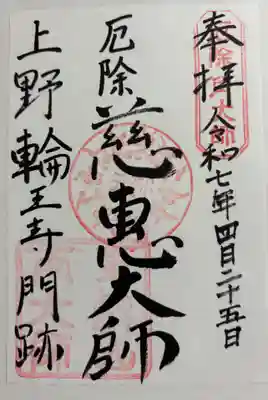 奉拝 令和七年四月二十五日
厄除 慈惠大師
上野輪王寺門跡